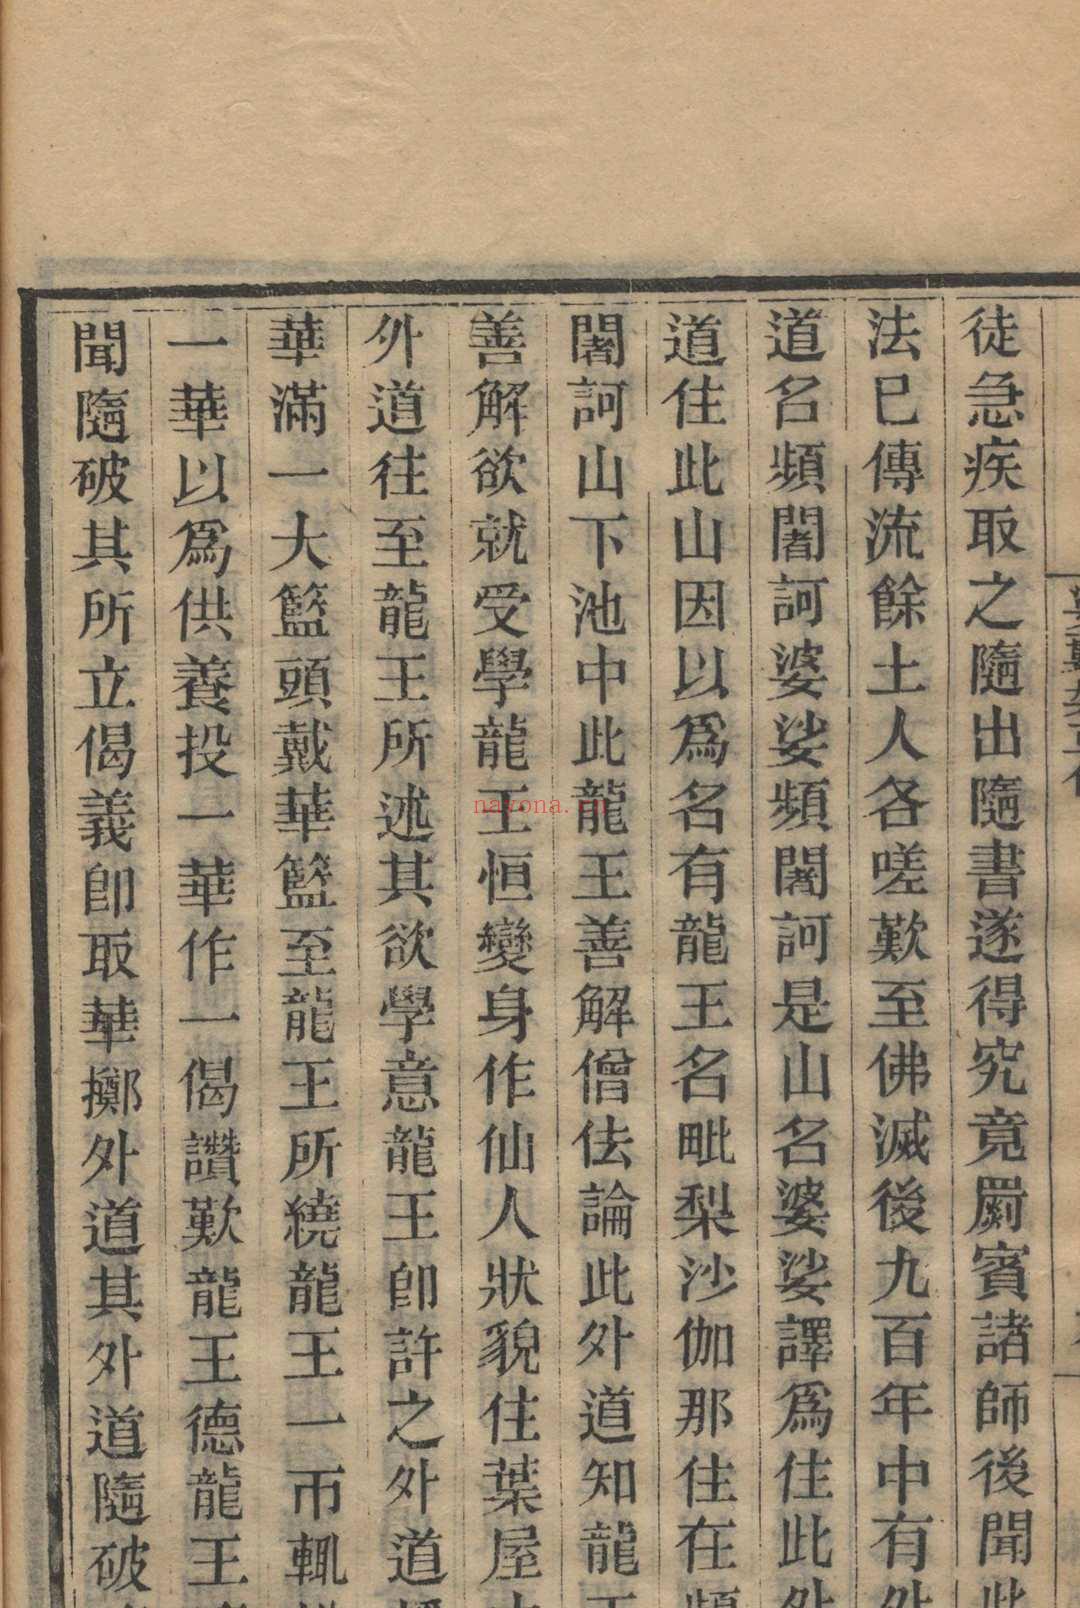 徒急疾取之隨出隨書遂得究竟罽賓諸師後聞此
法已傳流餘土人各嗟歎至佛滅後九百年中有外
道名頻闍訶婆娑頻闍訶是山名婆娑譯為住此外
道住此山因以為名有龍王名毗梨沙伽那住在頻
闍訶山下池中此龍王善解僧佉論此外道知龍王
善解欲就受學龍王恒變身作仙人狀貌住葉屋中
外道往至龍王所述其欲學意龍王卽許之外道
華滿一大籃頭戴華籃至龍王所繞龍王一帀輒
一華以為供養投一華作一偈讚歎龍王德龍王
聞隨破其所立偈義卽取華擲外道其外道隨破
nayona.cn